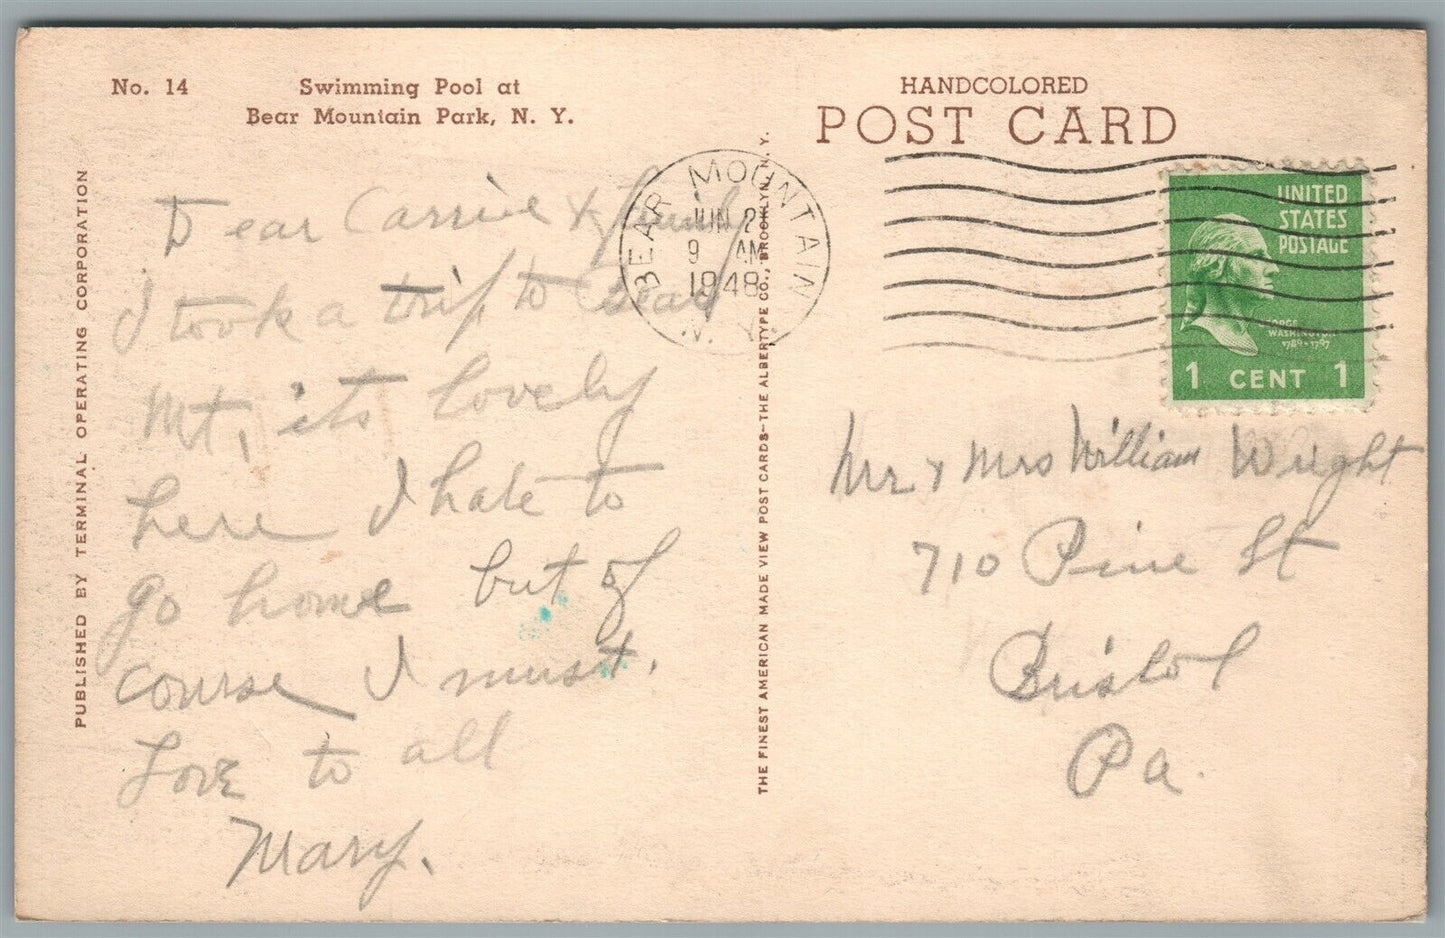 No. 14
Swimming Pool at
Bear Mountain Park, N. Y.
HANDCOLORED
POST CARD
PUBLISHED BY TERMINAL OPERATING CORPORATION
THE FINEST AMERICAN MADE VIEW POST CARDS—THE ALBERTYPE CO., BROOKLYN, N. Y.
BEAR MOUNTAIN
JUN 2
9 AM
1948
N. Y.
UNITED
STATES
POSTAGE
GEORGE
WASHINGTON
1789-1797
1 CENT 1
Dear Carrie & family
I took a trip to Bear
Mt, its lovely
here I hate to
go home but of
course I must.
Love to all
Mary.
Mr & Mrs William Wright
710 Pine St
Bristol
Pa.